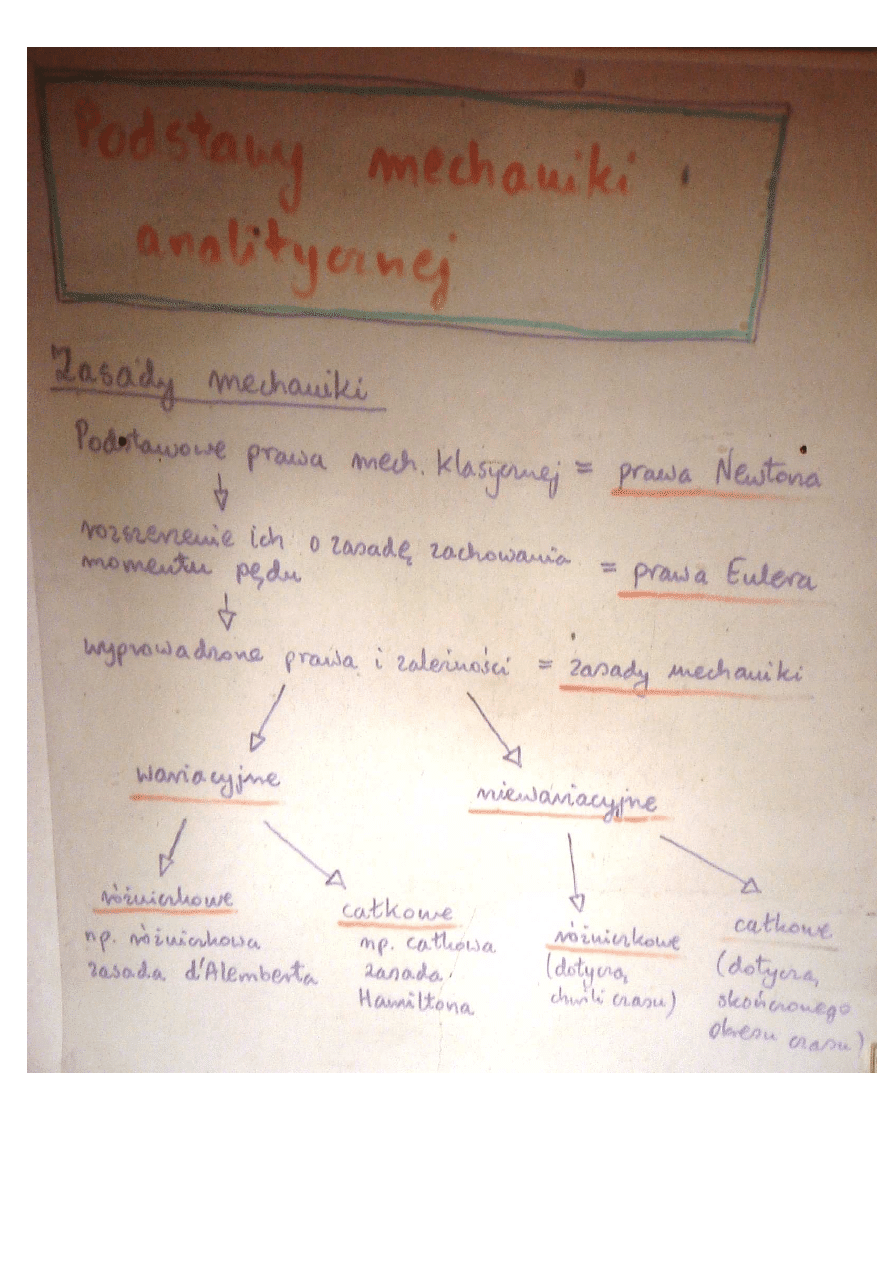 Podstawy mechaniki
analitycznej
Zasady mechaniki
Podstawowe prawa mech. klasycznej = prawa Newtona
rozszerzenie ich o zasadę zachowania
momentu pędu = prawa Eulera
wyprowadzone prawa i zależności = zasady mechaniki
wariacyjne niewariacyjne
różniczkowe
np. różniczkowa
zasada d'Alemberta
całkowe
np. całkowa
zasada
Hamiltona
różniczkowe
(dotyczą
chwili czasu)
całkowe
(dotyczą
skończonego
okresu czasu)